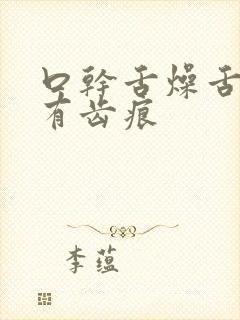 口幹舌燥舌
有齿痕
李蕴